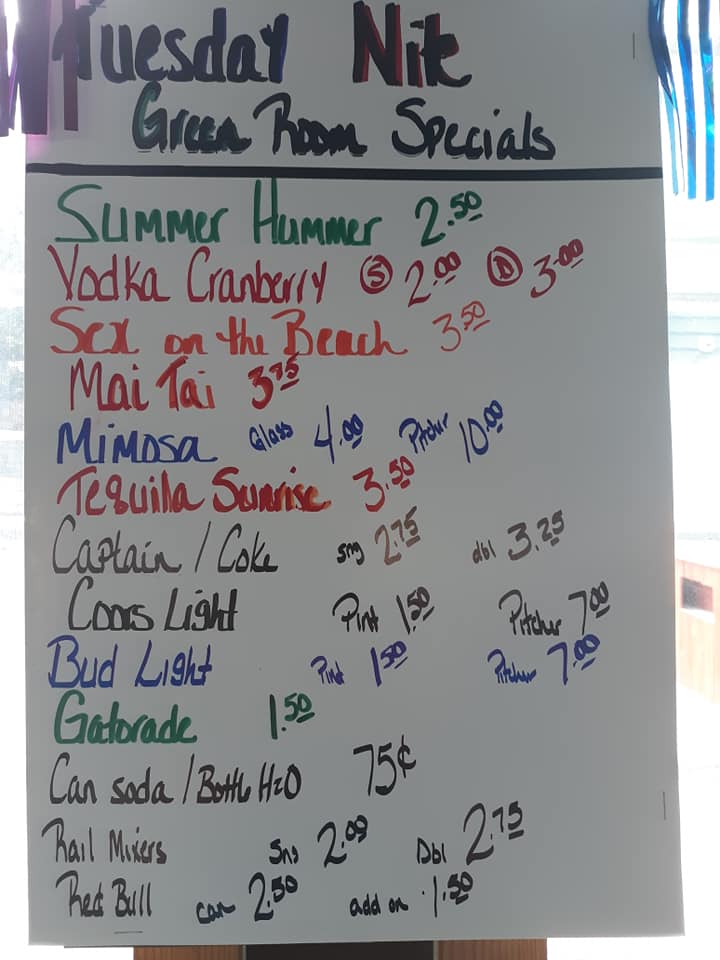 Tuesday Nite
Green Room Specials
Summer Hummer 2.50
Vodka Cranberry S 2.00 D 3.00
Sex on the Beach 3.50
Mai Tai 3.75
Mimosa Glass 4.00 Pitchur 10.00
Tequila Sunrise 3.50
Captain / Coke sng 2.75 dbl 3.25
Coors Light Pint 1.50 Pitcher 7.00
Bud Light Pint 1.50 Pitcher 7.00
Gatorade 1.50
Can soda / Bottle H2O 75¢
Rail Mixers Sng 2.00 Dbl 2.75
Red Bull can 2.50 add on 1.50